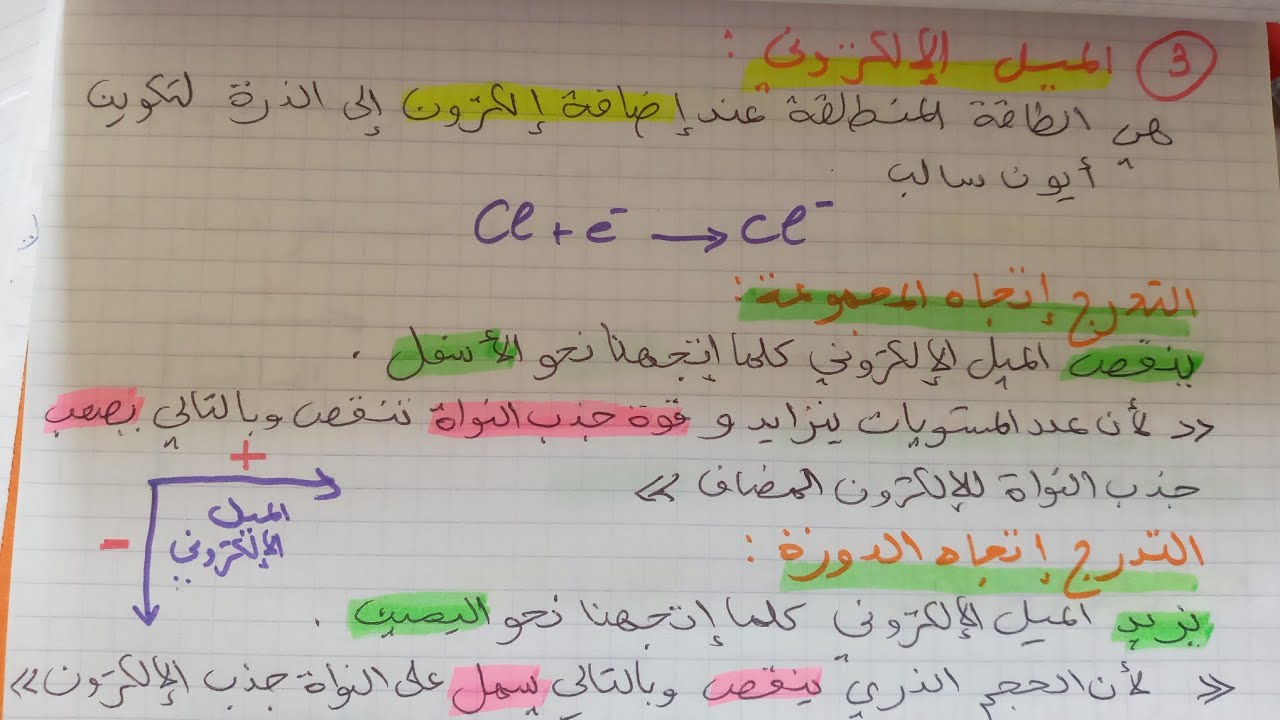 ③ الميل الإلكتروني :
هي الطاقة المنطلقة عند إضافة إلكترون إلى الذرة لتكوين
أيون سالب
Cl + e⁻ → Cl⁻
التدرج إتجاه المجموعة :
ينقص الميل الإلكتروني كلما إتجهنا نحو الأسفل .
« لأن عدد المستويات يتزايد و قوة جذب النواة تنقص وبالتالي يصعب
جذب النواة للإلكترون المضاف »
+
الميل
الإلكتروني
-
التدرج إتجاه الدورة :
يزيد الميل الإلكتروني كلما إتجهنا نحو اليمين .
« لأن الحجم الذري ينقص وبالتالي يسهل على النواة جذب الإلكترون »